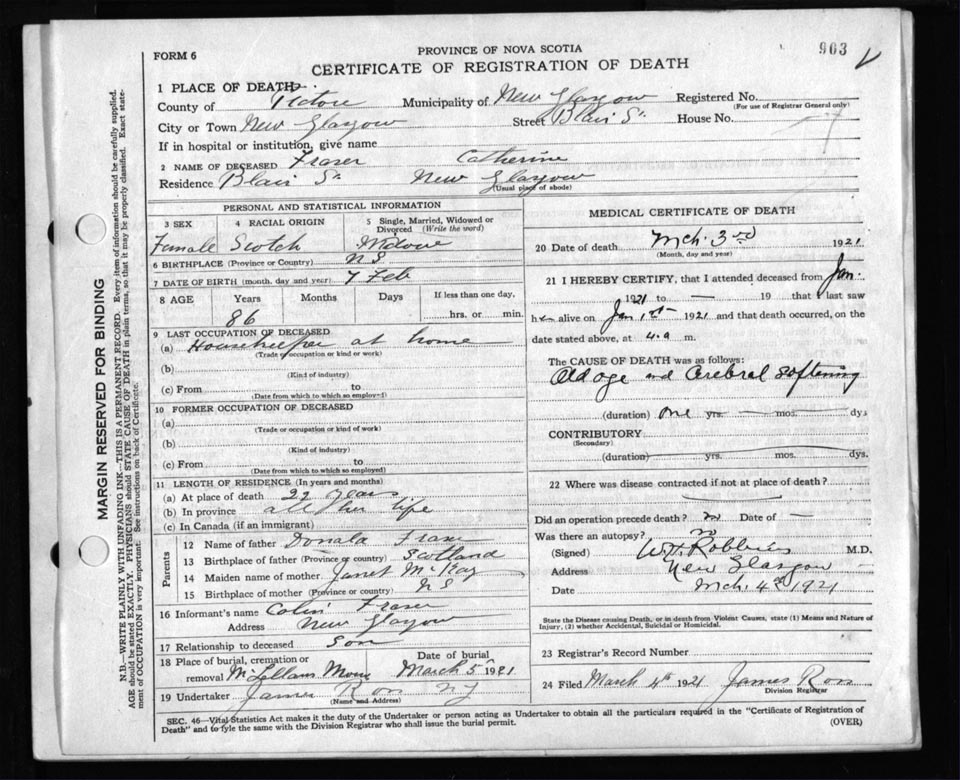 903
FORM 6
PROVINCE OF NOVA SCOTIA
CERTIFICATE OF REGISTRATION OF DEATH
1 PLACE OF DEATH
County of Pictou Municipality of New Glasgow Registered No.
(For use of Registrar General only)
City or Town New Glasgow Street Blair St. House No.
If in hospital or institution, give name
2 NAME OF DECEASED Fraser Catherine
Residence Blair St New Glasgow
(Usual place of abode)
PERSONAL AND STATISTICAL INFORMATION
3 SEX 4 RACIAL ORIGIN 5 Single, Married, Widowed or Divorced (Write the word)
Female Scotch Widow
6 BIRTHPLACE (Province or Country) N S
7 DATE OF BIRTH (month, day and year) 7 Feb
8 AGE Years Months Days If less than one day,
86 hrs. or min.
9 LAST OCCUPATION OF DECEASED
(a) Housekeeper at home
(Trade or occupation or kind of work)
(b)
(Kind of industry)
(c) From to
(Date from which to which so employed)
10 FORMER OCCUPATION OF DECEASED
(a)
(Trade or occupation or kind of work)
(b)
(Kind of industry)
(c) From to
(Date from which to which so employed)
11 LENGTH OF RESIDENCE (In years and months)
(a) At place of death 22 years
(b) In province all her life
(c) In Canada (if an immigrant)
Parents
12 Name of father Donald Fraser
13 Birthplace of father (Province or country) Scotland
14 Maiden name of mother Janet McKay
15 Birthplace of mother (Province or country) N S
16 Informant's name Colin Fraser
Address New Glasgow
17 Relationship to deceased Son
18 Place of burial, cremation or removal McLellans Date of burial March 5 1921
19 Undertaker James Ross N G
(Name and Address)
MEDICAL CERTIFICATE OF DEATH
20 Date of death Mch. 3rd 1921
(Month, day and year)
21 I HEREBY CERTIFY, that I attended deceased from Jan.
1921 to — 19 that I last saw
her alive on Jan 1st 1921 and that death occurred, on the
date stated above, at 4 a m.
The CAUSE OF DEATH was as follows:
Old age and Cerebral Softening
(duration) one yrs. mos. dys
CONTRIBUTORY
(Secondary)
(duration) yrs. mos. dys.
22 Where was disease contracted if not at place of death?
Did an operation precede death? no Date of —
Was there an autopsy? no
(Signed) M.D.
Address New Glasgow
Date Mch. 4th 1921
State the Disease causing Death, or in death from Violent Causes, state (1) Means and Nature of
Injury, (2) whether Accidental, Suicidal or Homicidal.
23 Registrar's Record Number
24 Filed March 4th 1921 James Ross
Division Registrar
SEC. 46—Vital Statistics Act makes it the duty of the Undertaker or person acting as Undertaker to obtain all the particulars required in the "Certificate of Registration of
Death" and to fyle the same with the Division Registrar who shall issue the burial permit.
(OVER)
MARGIN RESERVED FOR BINDING
N.B.—WRITE PLAINLY WITH UNFADING INK—THIS IS A PERMANENT RECORD. Every item of information should be carefully supplied.
AGE should be stated EXACTLY. PHYSICIANS should STATE CAUSE OF DEATH in plain terms, so that it may be properly classified. Exact state-
ment of OCCUPATION is very important. See instructions on back of Certificate.